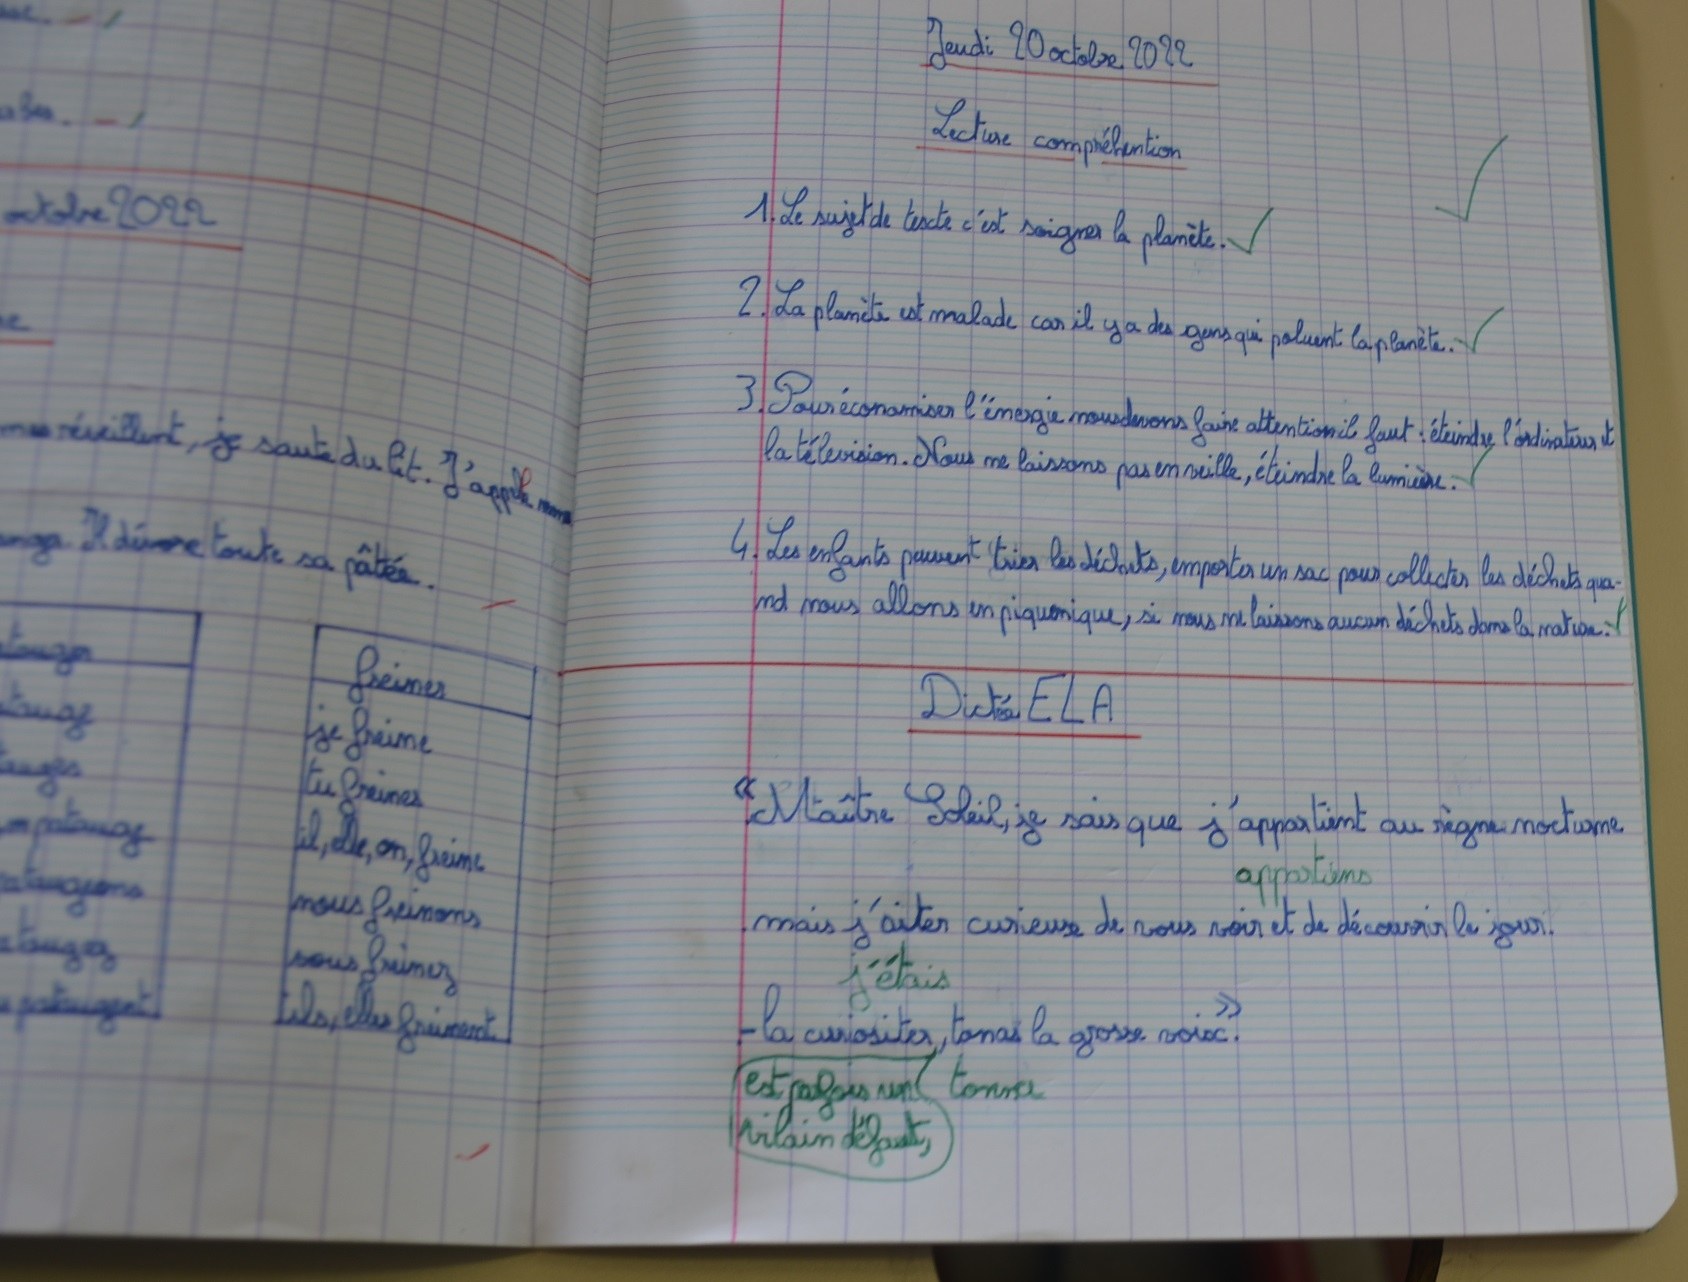 octobre 2022
réveillent, je saute du lit. J'appelle mon
Il dévore toute sa pâtée.
freiner
je freine
tu freines
il, elle, on, freine
nous freinons
vous freinez
ils, elles freinent
patauge
pataugeons
pataugez
pataugent
Jeudi 20 octobre 2022
Lecture compréhention
1. Le sujet de texte c'est soigner la planète.
2. La planète est malade car il y a des gens qui poluent la planète.
3. Pour économiser l'énergie nous devons faire attention il faut : éteindre l'ordinateur et
la télévision. Nous ne laissons pas en veille, éteindre la lumière.
4. Les enfants peuvent trier les déchets, emporter un sac pour collecter les déchets qua-
nd nous allons en piquenique, si nous ne laissons aucun déchets dans la nature.
Dictée ELA
« Maître Soleil, je sais que j'appartient au règne nocturne
appartiens
mais j'aiter curieuse de vous voir et de découvrir le jour.
j'étais
- la curiositer, tonai la grosse voix ».
est parfois un tonna
vilain défaut,